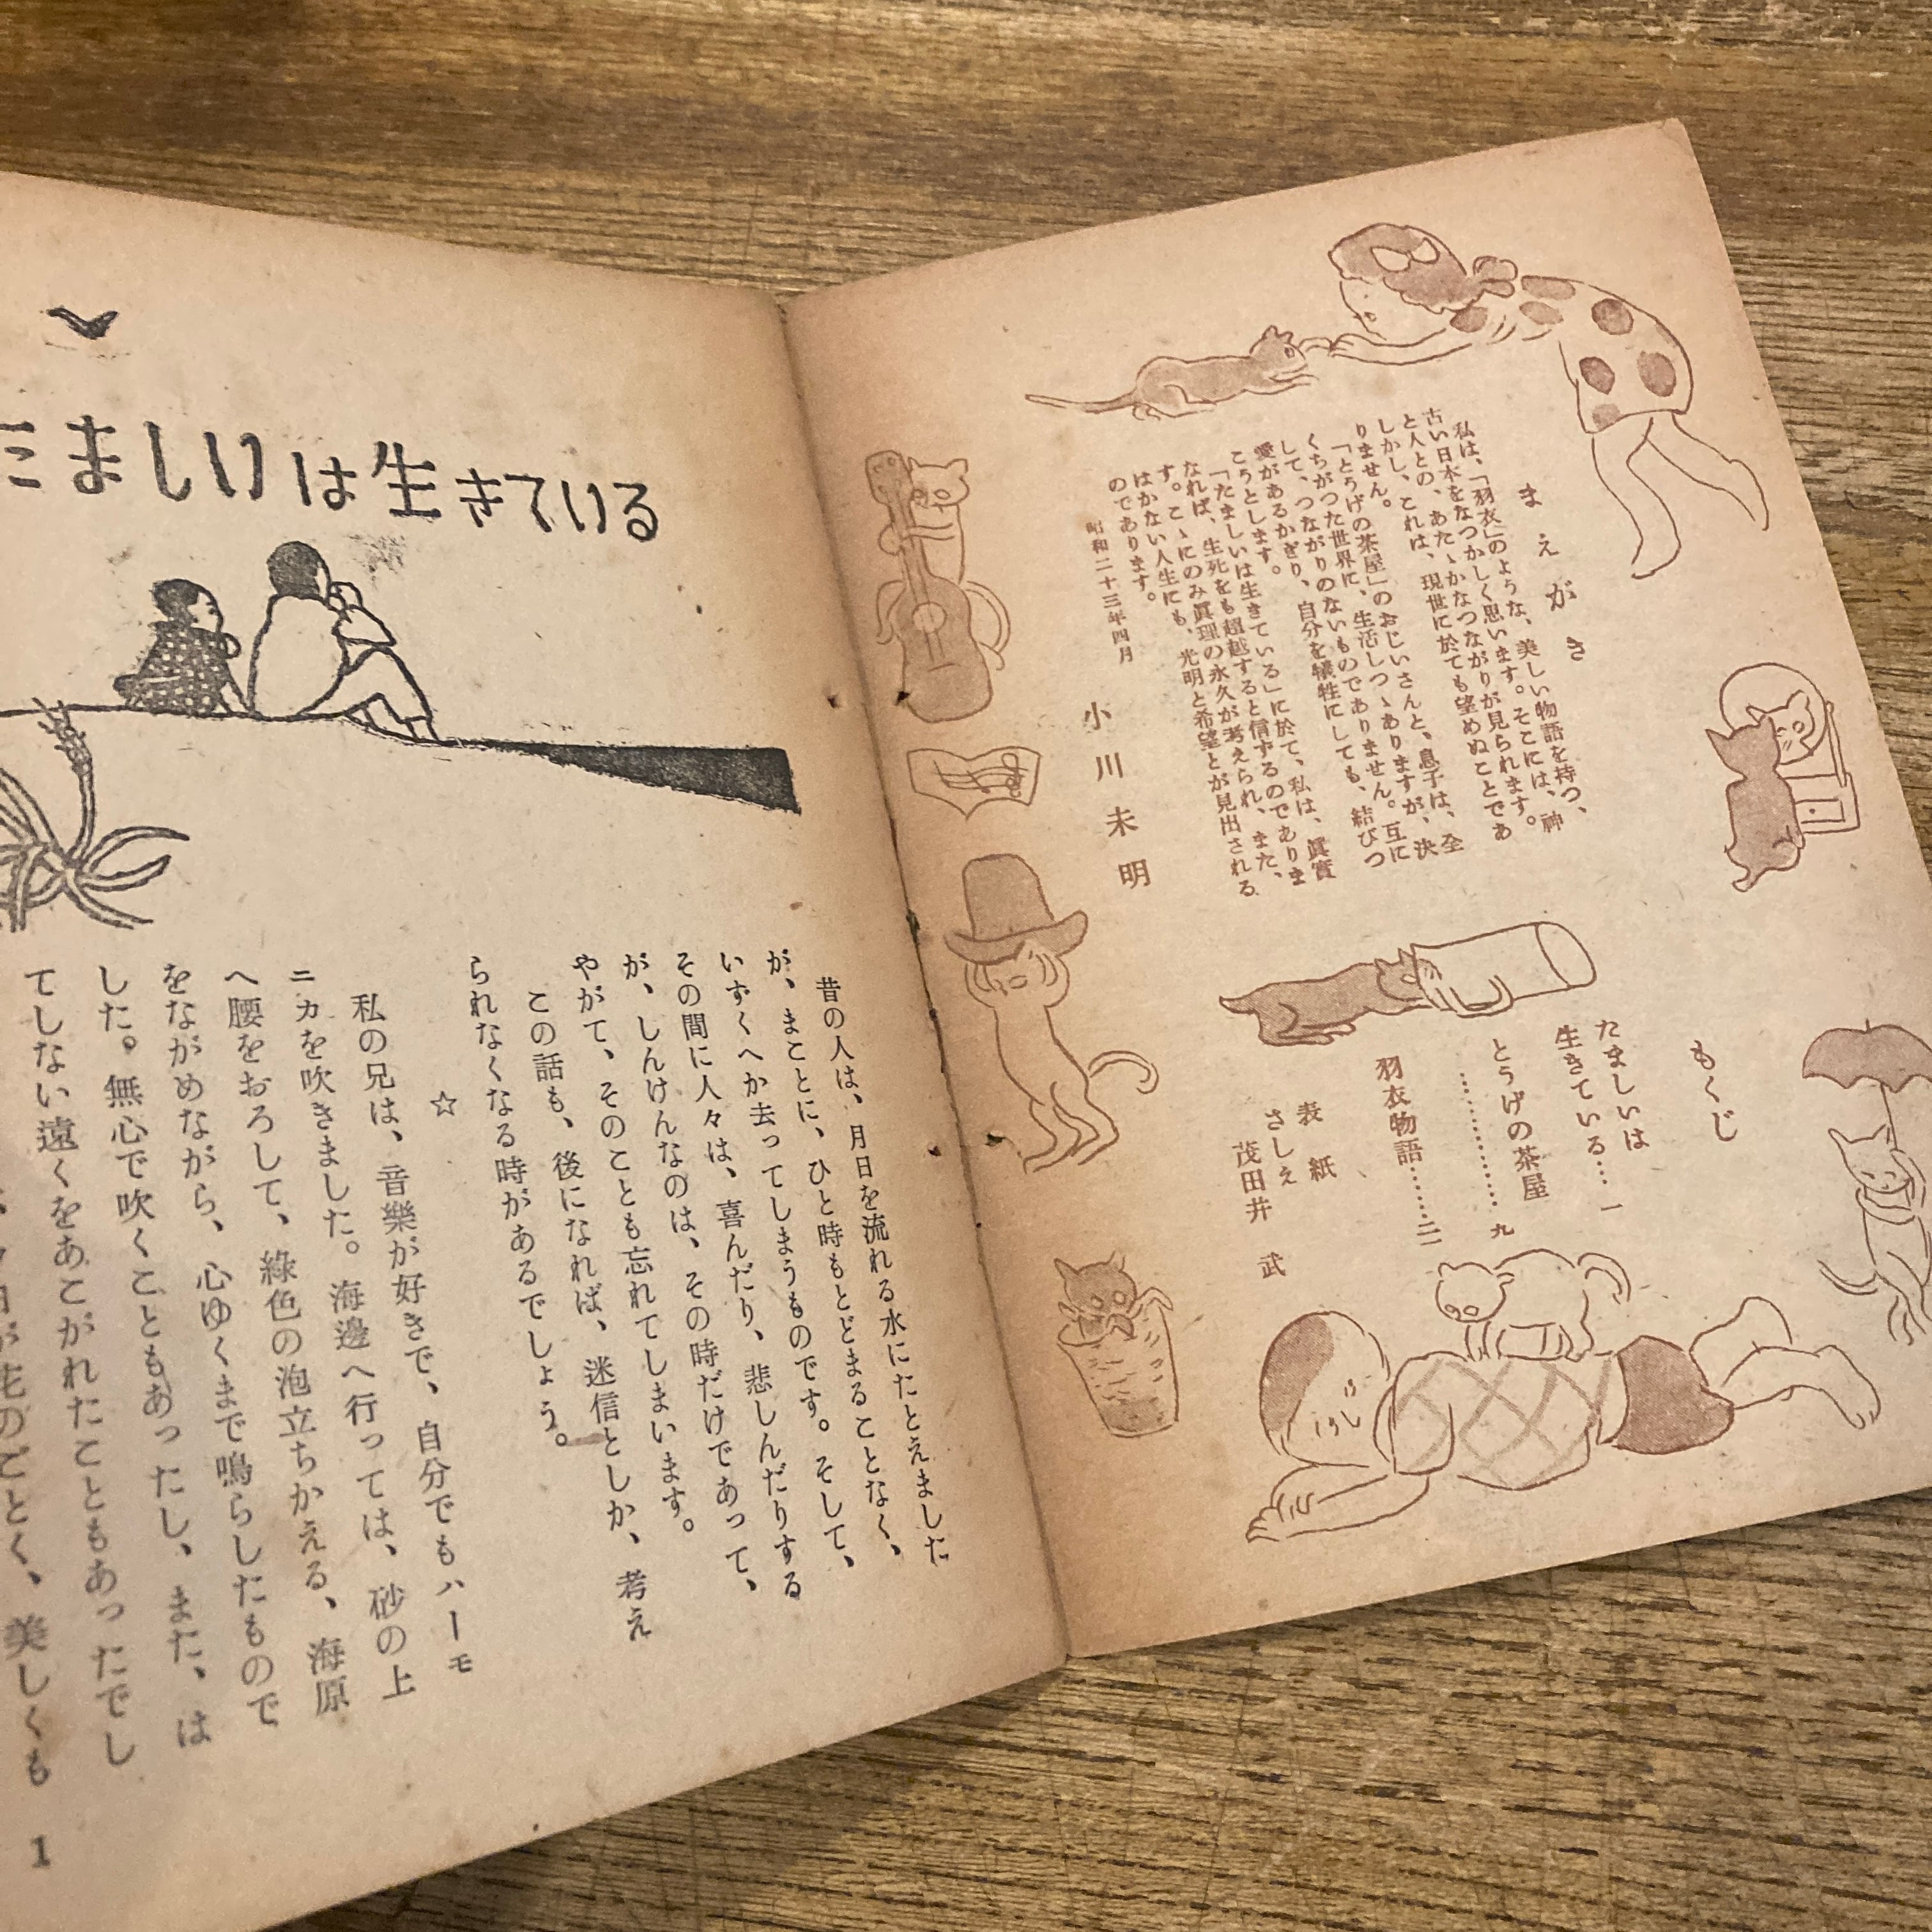 まえがき
私は、「羽衣」のような、美しい物語を持つ、
古い日本をなつかしく思います。そこには、神
と人との、あたゝかなつながりが見られます。
しかし、これは、現世に於ても望めぬことであ
りません。
「とうげの茶屋」のおじいさんと、息子は、全
くちがつた世界に、生活しつゝありますが、決
して、つながりのないものでありません。互に
愛があるかぎり、自分を犠牲にしても、結びつ
こうとします。
「たましいは生きている」に於て、私は、眞實
なれば、生死をも超越すると信ずるのでありま
す。こゝにのみ眞理の永久が考えられ、また、
はかない人生にも、光明と希望とが見出される
のであります。
昭和二十三年四月
小川未明
もくじ
たましいは
生きている…一
とうげの茶屋
…………九
羽衣物語……二一
表紙
さしえ
茂田井 武
たましいは生きている
昔の人は、月日を流れる水にたとえました
が、まことに、ひと時もとどまることなく、
いずくへか去ってしまうものです。そして、
その間に人々は、喜んだり、悲しんだりする
が、しんけんなのは、その時だけであって、
やがて、そのことも忘れてしまいます。
この話も、後になれば、迷信としか、考え
られなくなる時があるでしょう。
☆
私の兄は、音樂が好きで、自分でもハーモ
ニカを吹きました。海邊へ行っては、砂の上
へ腰をおろして、綠色の泡立ちかえる、海原
をながめながら、心ゆくまで鳴らしたもので
した。無心で吹くこともあったし、また、は
てしない遠くをあこがれたこともあったでし
花のごとく、美しくも
1